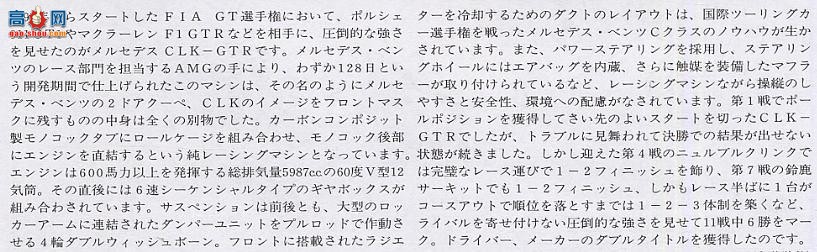 高高
らスタートしたＦＩＡ ＧＴ選手権において、ポルシェ
やマクラーレン Ｆ1ＧＴＲなどを相手に、圧倒的な強さ
を見せたのがメルセデス CLK－GTRです。メルセデス・ベン
ツのレース部門を担当するＡＭＧの手により、わずか128日とい
う開発期間で仕上げられたこのマシンは、その名のようにメルセ
デス・ベンツの２ドアクーペ、ＣＬＫのイメージをフロントマス
クに残すものの中身は全くの別物でした。カーボンコンポジット
製モノコックタブにロールケージを組み合わせ、モノコック後部
にエンジンを直結するという純レーシングマシンとなっています。
エンジンは600馬力以上を発揮する総排気量5987ccの60度Ｖ型12
気筒。その直後には６速シーケンシャルタイプのギヤボックスが
組み合わされています。サスペンションは前後とも、大型のロッ
カーアームに連結されたダンパーユニットをプルロッドで作動さ
せる４輪ダブルウィッシュボーン。フロントに搭載されたラジエ
ターを冷却するためのダクトのレイアウトは、国際ツーリングカ
ー選手権を戦ったメルセデス・ベンツＣクラスのノウハウが生か
されています。また、パワーステアリングを採用し、ステアリン
グホイールにはエアバッグを内蔵、さらに触媒を装備したマフラ
ーが取り付けられているなど、レーシングマシンながら操縦のし
やすさと安全性、環境への配慮がなされています。第１戦でポー
ルポジションを獲得してさい先のよいスタートを切ったＣＬＫ－
ＧＴＲでしたが、トラブルに見舞われて決勝での結果が出せない
状態が続きました。しかし迎えた第４戦のニュルブルクリンクで
は完璧なレース運びで１－２フィニッシュを飾り、第７戦の鈴鹿
サーキットでも１－２フィニッシュ、しかもレース半ばに１台が
コースアウトで順位を落とすまでは１－２－３体制を築くなど、
ライバルを寄せ付けない圧倒的な強さを見せて11戦中６勝をマー
ク。ドライバー、メーカーのダブルタイトルを獲得したのです。